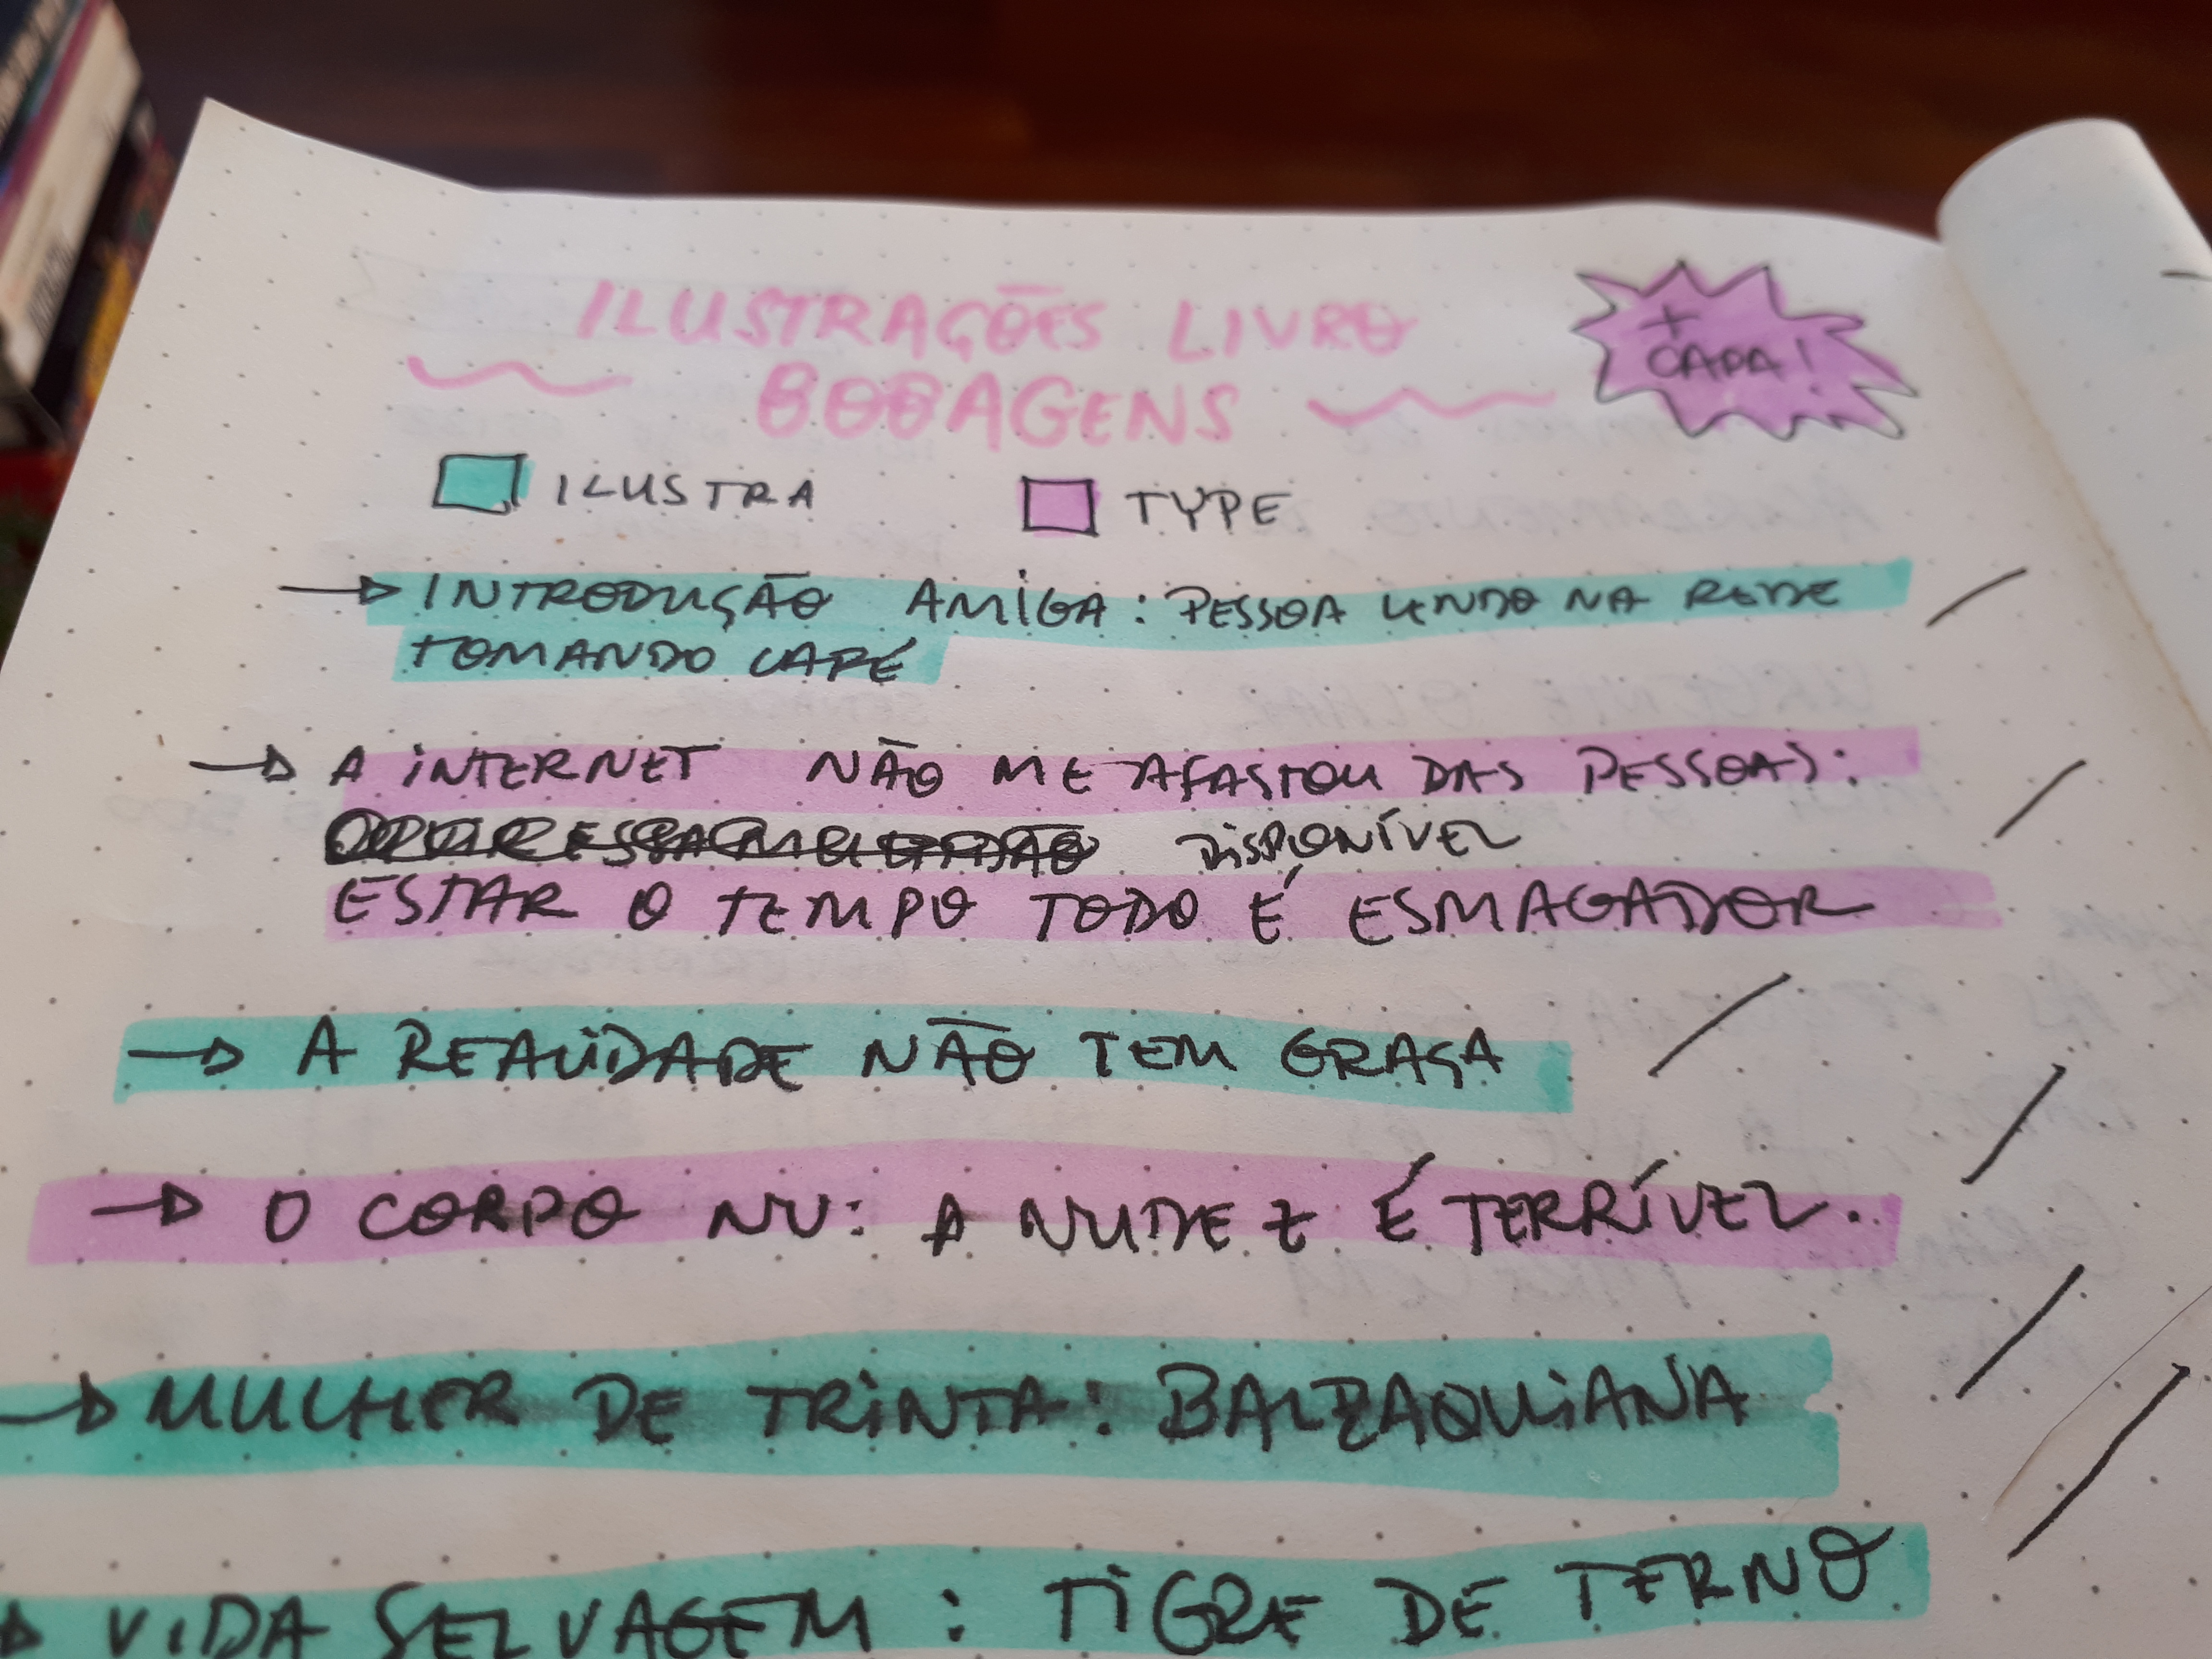 ILUSTRAÇÕES LIVRO
BOBAGENS
+
CAPA!
ILUSTRA
TYPE
INTRODUÇÃO AMIGA: PESSOA LENDO NA REDE
TOMANDO CAFÉ
A INTERNET NÃO ME AFASTOU DAS PESSOAS:
DISPONÍVEL
ESTAR O TEMPO TODO É ESMAGADOR
A REALIDADE NÃO TEM GRAÇA
O CORPO NU: A NUDEZ É TERRÍVEL.
MULHER DE TRINTA: BALZAQUIANA
VIDA SELVAGEM: TIGRE DE TERNO